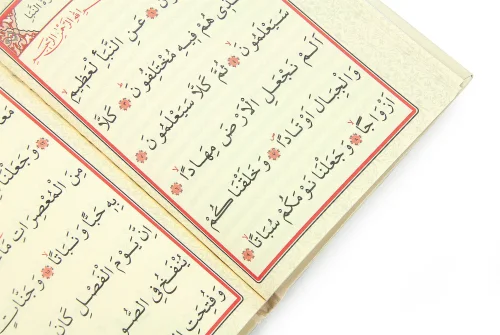 النبأ
الرحمن
عَنِ النَّبَأِ الْعَظِيمِ
الَّذِي هُمْ فِيهِ مُخْتَلِفُونَ ۞ كَلَّا
سَيَعْلَمُونَ ۞ ثُمَّ كَلَّا سَيَعْلَمُونَ ۞
اَلَمْ نَجْعَلِ الْاَرْضَ مِهَادًا ۞
وَالْجِبَالَ اَوْتَادًا ۞ وَخَلَقْنَاكُمْ
اَزْوَاجًا ۞ وَجَعَلْنَا نَوْمَكُمْ سُبَاتًا ۞
وَجَعَلْنَا
مِنَ الْمُعْصِرَاتِ مَاءً
بِهِ حَبًّا وَنَبَاتًا ۞ وَجَنَّاتٍ
اِنَّ يَوْمَ الْفَصْلِ كَانَ
يُنْفَخُ فِي الصُّو
وَفُتِحَتِ